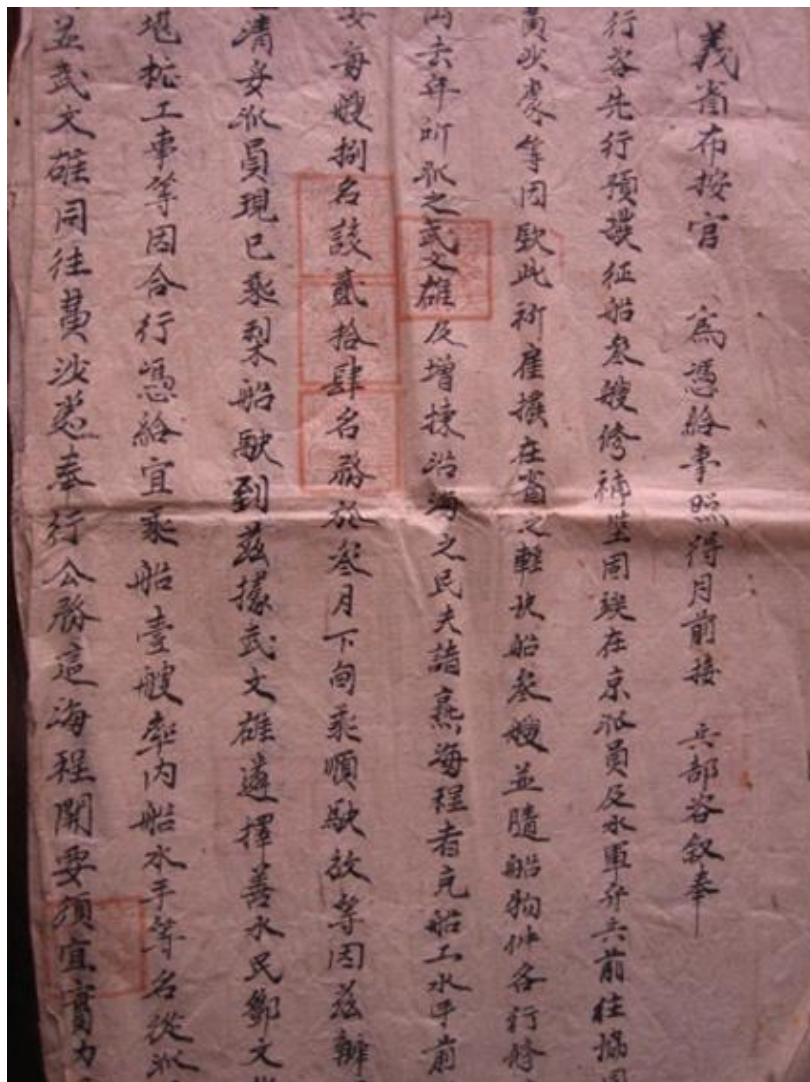 義省布按官 為憑給事照得月前接 兵部咨叙奉
行咨先行預撥征船叁艘修補堅固竢在京派員及水軍弁兵前往協同
黃沙處等因欽此祈雇撥在省之輕快船叁艘並隨船物件各行修
去年所派之武文雄及增揀沿海之民夫諳熟海程者充船工水手前
每艘捌名該貳拾肆名務於叁月下旬乘順駛放等因茲辦
清妥派員現已乘梨船駛到茲據武文雄遴擇善水民鄧文
堪舵工事等因合行憑給宜乘船壹艘率内船水手等名從派
並武文雄同往黃沙處奉行公務這海程關要須宜實力